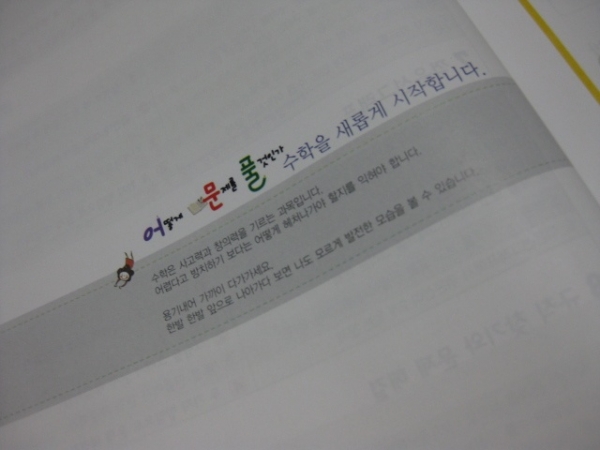 어떻게 문제를 풀것인가 수학을 새롭게 시작합니다.
수학은 사고력과 창의력을 기르는 과목입니다.
어렵다고 방치하기 보다는 어떻게 헤쳐나가야 할지를 익혀야 합니다.
용기내어 가까이 다가가세요.
한발 한발 앞으로 나아가다 보면 나도 모르게 발전한 모습을 볼 수 있습니다.